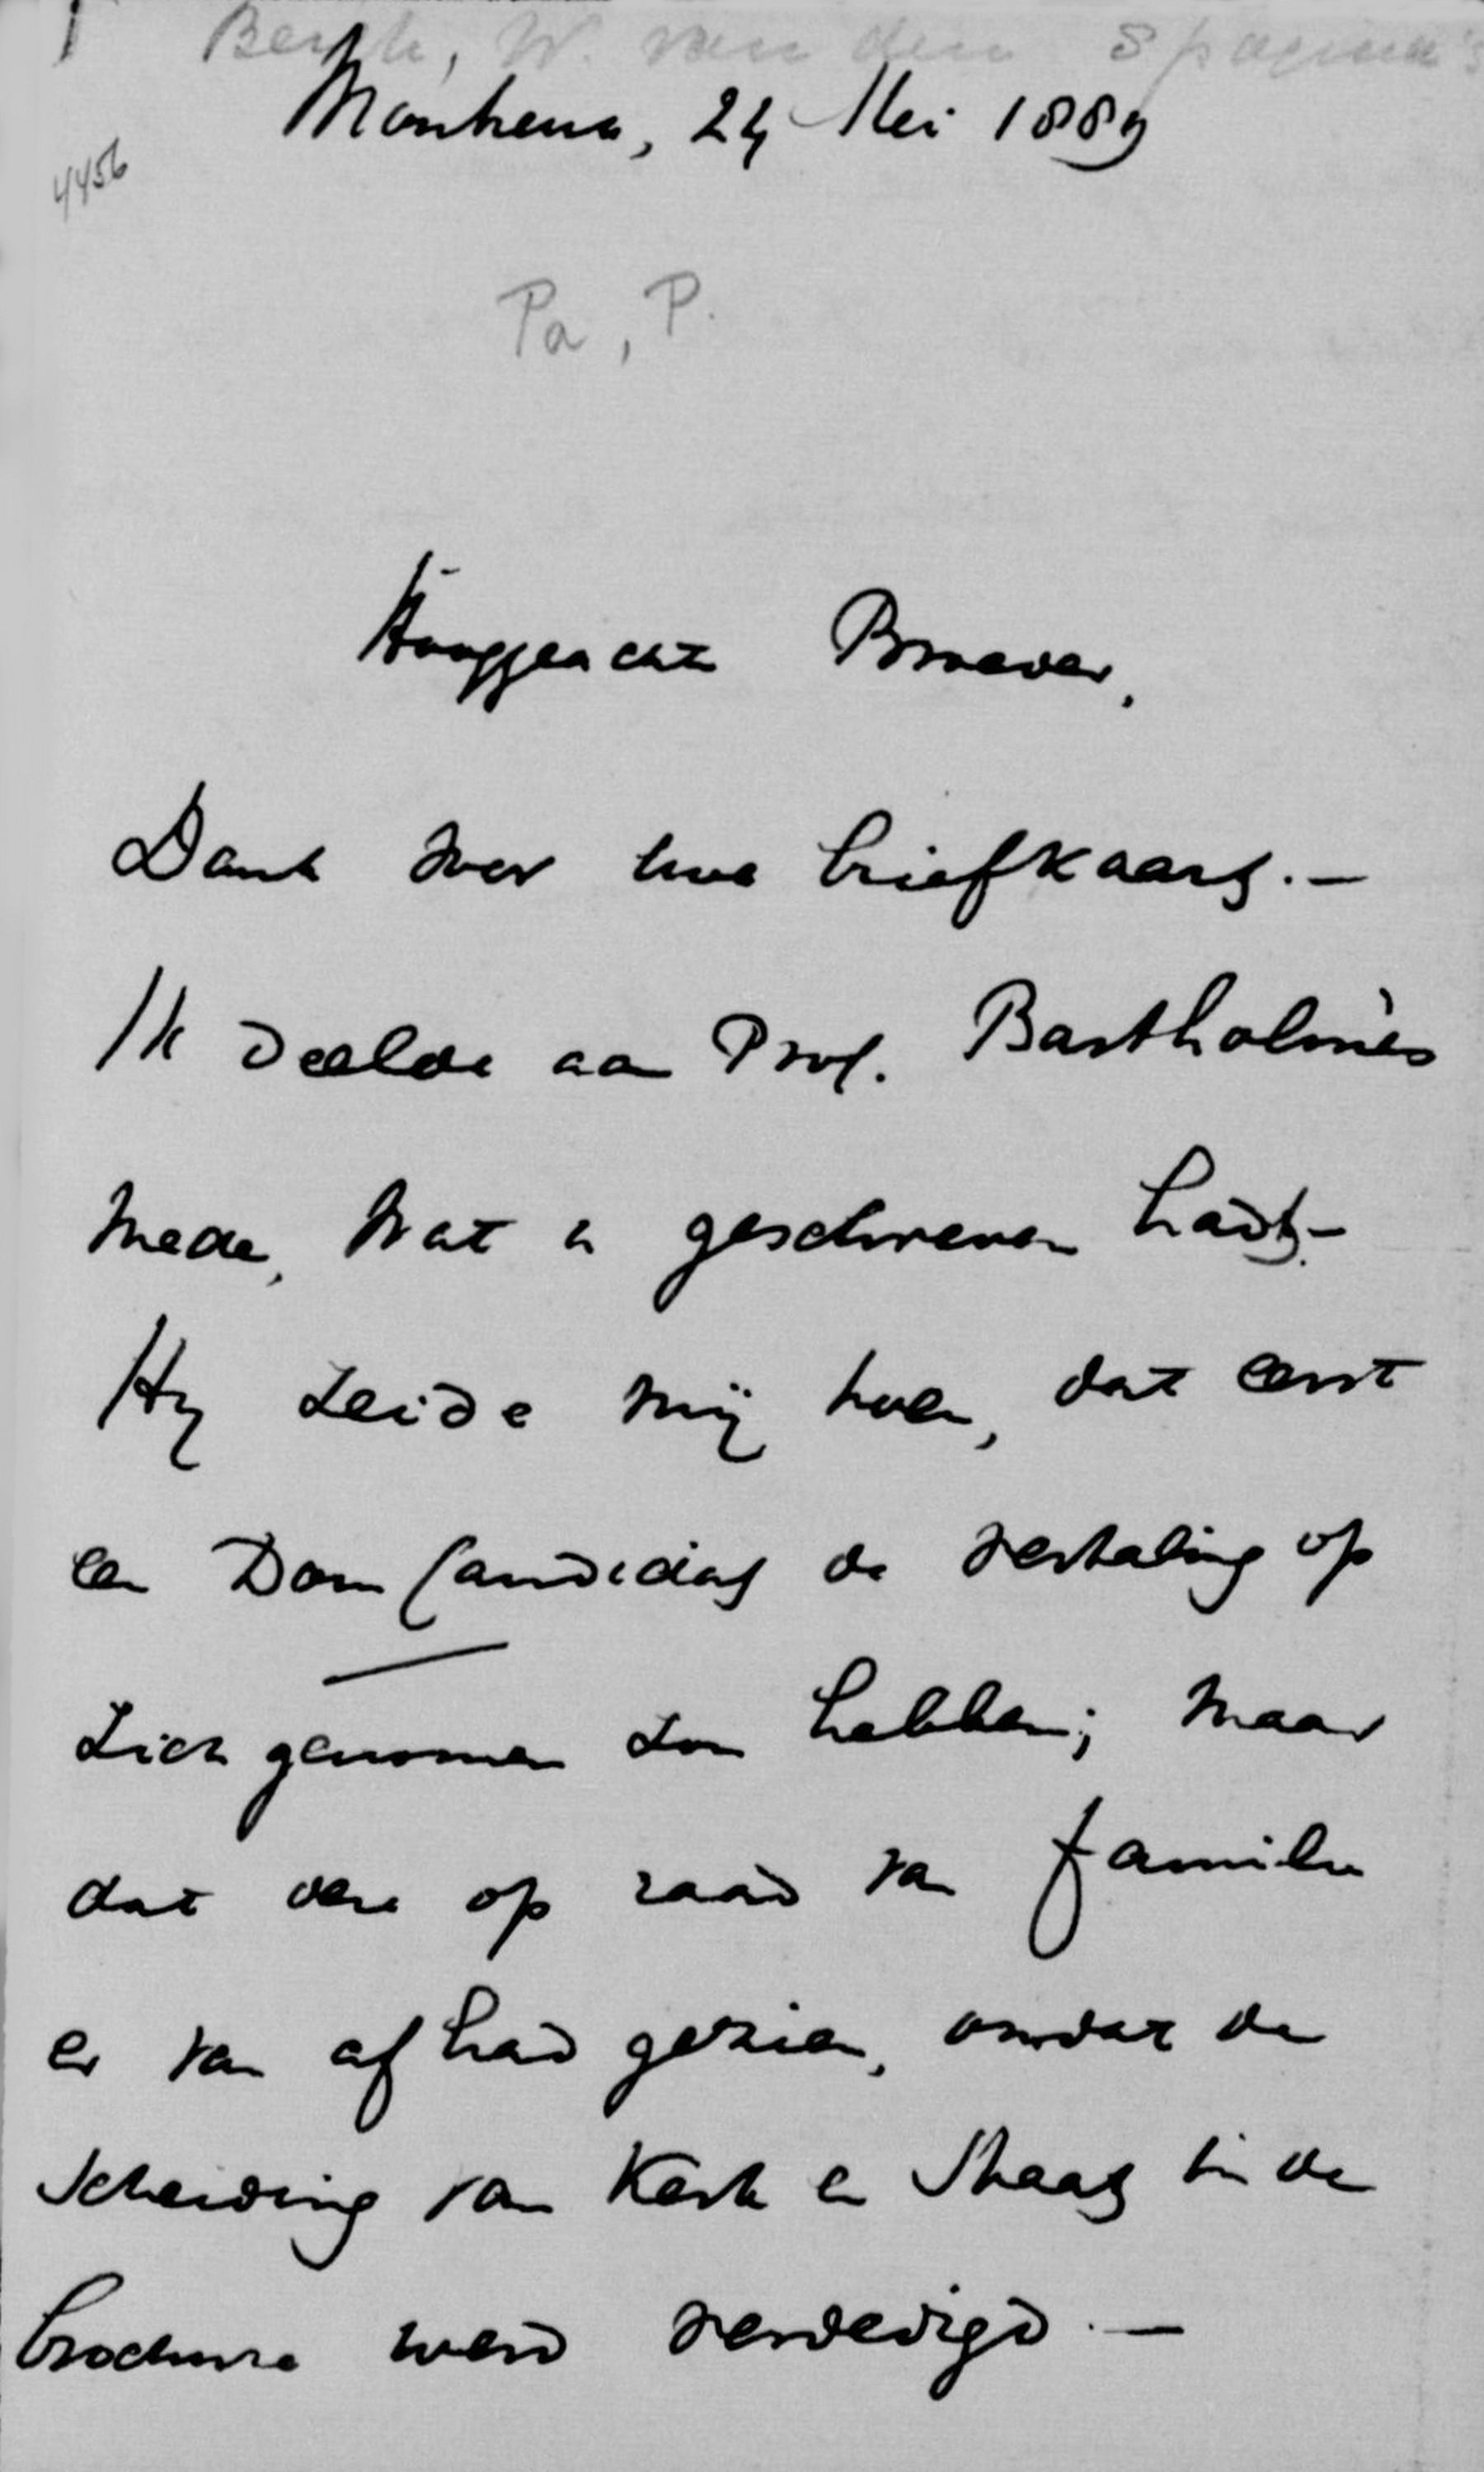 Bergh, W. van den 8 pagina's
Montreux, 24 Mei 1889
4456
Pa, P.
Hooggeachte Broeder,
Dank voor uwe briefkaart. —
Ik deelde aan Prof. Bartholmès
mede, wat u geschreven hadt. —
Hij zeide mij toen, dat eerst
een Dom Candidaat de vertaling op
zich genomen zou hebben; maar
dat deze op raad van familie
er van af had gezien, omdat de
scheiding van Kerk en Staat in de
brochure werd verdedigd. —